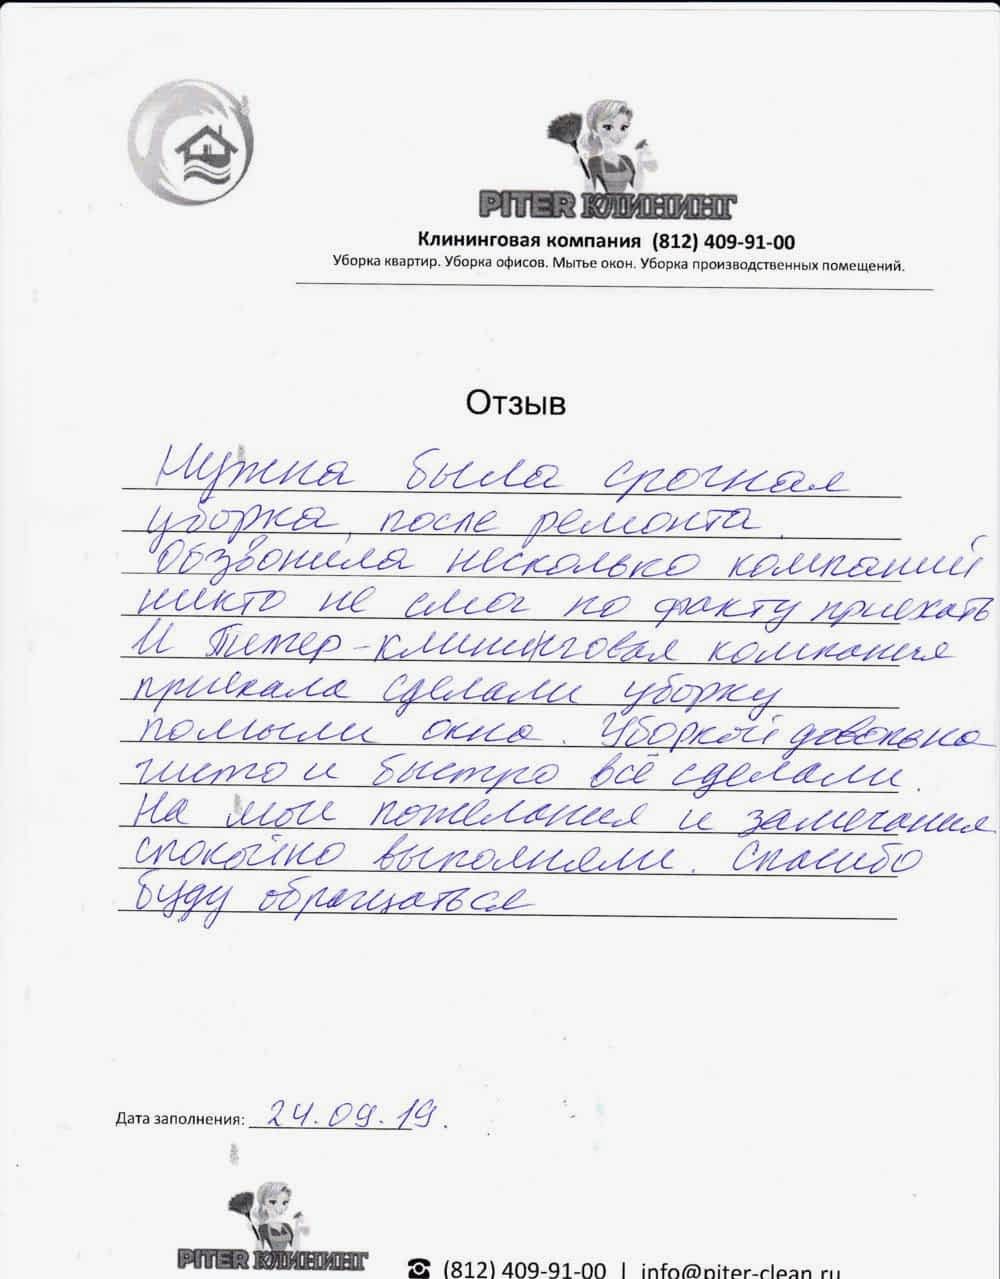 PITER КЛИНИНГ
Клининговая компания (812) 409-91-00
Уборка квартир. Уборка офисов. Мытье окон. Уборка производственных помещений.
Отзыв
Нужна была срочная
уборка, после ремонта.
Обзвонила несколько компаний
никто не смог по факту приехать
И Питер-клининговая компания
приехала сделали уборку
помыли окна. Уборкой довольна
чисто и быстро всё сделали.
На мои пожелания и замечания
спокойно выполняли. Спасибо
буду обращаться
Дата заполнения: 24.09.19.
PITER КЛИНИНГ
(812) 409-91-00 | info@piter-clean.ru